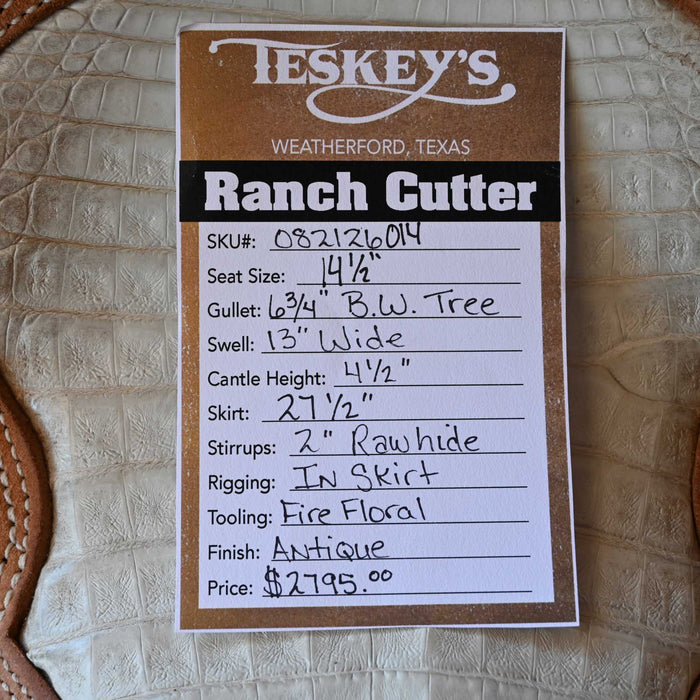 TESKEY'S
WEATHERFORD, TEXAS
Ranch Cutter
SKU#: 082126014
Seat Size: 14 1/2"
Gullet: 6 3/4" B.W. Tree
Swell: 13" Wide
Cantle Height: 4 1/2"
Skirt: 27 1/2"
Stirrups: 2" Rawhide
Rigging: In Skirt
Tooling: Fire Floral
Finish: Antique
Price: $2795.00